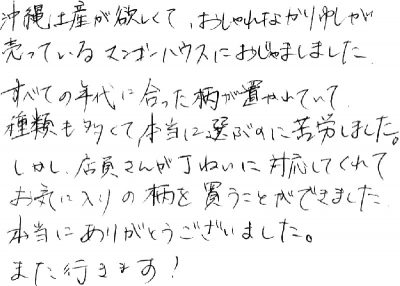 沖縄土産が欲しくて、おしゃれなかりゆしが
売っているマンゴーハウスにおじゃましました。
すべての年代に合った柄が置かれていて
種類も多くて、本当に選ぶのに苦労しました。
しかし、店員さんが丁ねいに対応してくれて
お気に入りの柄を買うことができました。
本当にありがとうございました。
また行きます!